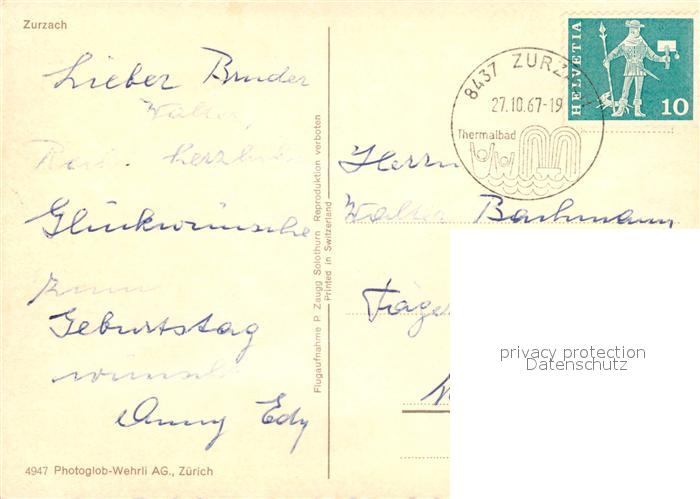 Zurzach
Lieber Bruder
Walter
Glückwünsche
zum
Geburtstag
wünscht
Anny Edy
4947 Photoglob-Wehrli AG., Zürich
Flugaufnahme P. Zaugg Solothurn Reproduktion verboten
Printed in Switzerland
8437 ZURZACH
27.10.67-19
Thermalbad
HELVETIA
10
Herrn
Walter Bachmann
privacy protection
Datenschutz